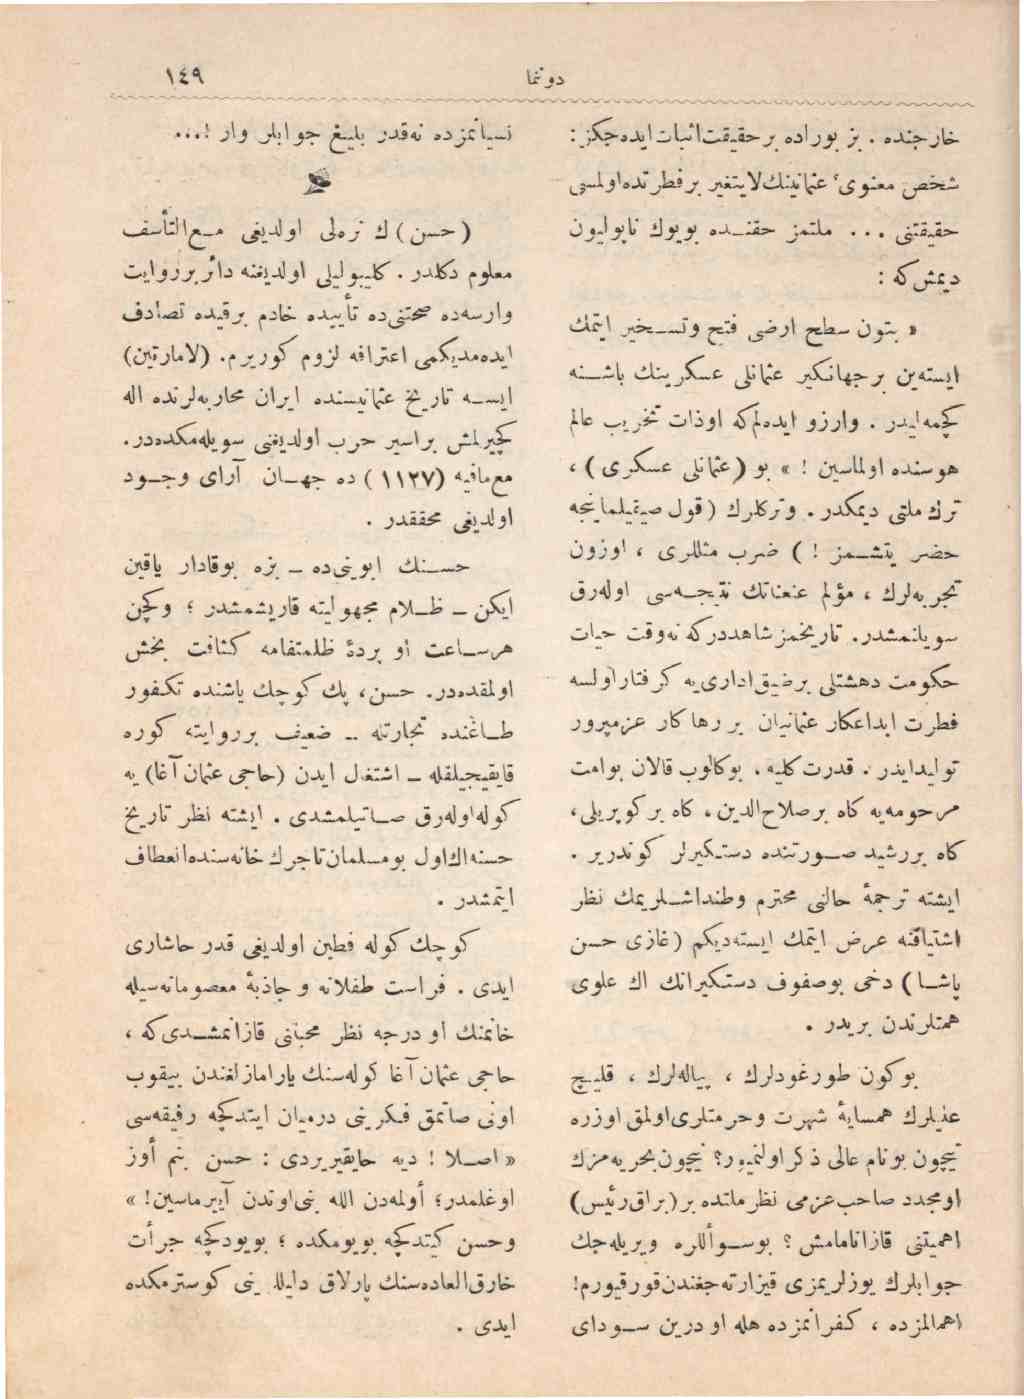 دوننما
١٤٩
خارجنده . بز بوراده بر حقیقت اثبات ایده جکز :
شخص معنوی ٔ عثمانینك لایتغیر بر فطرتده اولمسی
حقیقتنی ... ملتمز حقنـده بویوك ناپولیون
دیمش که :
« بتون سطح ارضی فتح وتسـخیر ایتمك
ایسته ین بر جهانکیر عثمانلی عسکرینك باشـنه
کچمه لیدر . وارزو ایده لم که اوذات تخریب عالم
هوسنده اولماسین ! » بو ( عثمانلی عسکری ) ،
ترك ملتی دیمکدر . وترکلرك ( قول صیقیلماینجه
حضر یتشـمز ! ) ضرب مثللری ، اوزون
تجربه لرك ، مؤلم عنعناتك نتیجـه سی اوله رق
سویلنمشدر. تاریخمز شاهددرکه نه وقت حیات
حکومت دهشتلی بر ضیق اداری یه گرفتار اولسه
فطرت ابداعکار عثمانیان بر رهاکار عزمپرور
تولید ایدر . قدرت کلیه ، بوکالوب قالان بوامت
مرحومه یه کاه بر صلاح الدین ، کاه بر کوپریلی ،
کاه بر رشید صـورتنده دستکیرلر کوندریر .
ایشته ترجمهٔ حالنی محترم وطنداشـلریمك نظر
اشتیاقنه عرض ایتمك ایسته دیکم ( غازی حسن
پاشـا ) دخی بوصفوف دستکیرانك اك علوی
همتلرندن بریدر .
بوکون طورغودلرك ، پیاله لرك ، قلیـج
علیلرك همسایهٔ شهرت وحرمتلری اولمق اوزره
نیچون بونام عالی ذکر اولنمیور؟ نیچون بحریه مزك
اومجدد صاحب عزمی نظر ملتده بر (براق رئیس)
اهمیتنی قازانامامش ؟ بوسـوأللره ویریله جك
جوابلرك یوزلریمزی قیزارته جغندن قورقیورم!
اهمالمزده ، کفرانمزده هله او درین سـودای
نسیانمزده نه قدر بلیـغ جوابلر وار !...
( حسن ) ك نره لی اولدیغی مـع التأسف
معلوم دکلدر . کلیبولیلی اولدیغنه دائر بر روایت
وارسه ده صحتنی ده تأییده خادم برقیده تصادف
ایده مدیکمی اعترافه لزوم کوریرم. (لامارتین)
ایسـه تاریخ عثمانیسنده ایران محاربه لرنده اله
کچیرلمش بر اسیر حرب اولدیغنی سویله مکده در.
مع مافیه ( ١١٢٧ ) ده جهـان آرای وجـود
اولدیغی محققدر .
حسـنك ابوینی ده ـ بزه بوقادار یاقین
ایکن ـ ظـلام مجهولیته قاریشمشدر ؛ وکچن
هرسـاعت او پردهٔ ظلمتفامه کثافت بخش
اولمقده در. حسن، پك کوچك یاشنده تکفور
طـاغنده تجارتله ـ ضعیف بر روایته کوره
قایقیجیلقله ـ اشتغال ایدن (حاجی عثمان آغا) یه
کوله اوله رق صـاتیلمشدی . ایشته نظر تاریخ
حسنه اك اول بومسلمان تاجرك خانه سنده انعطاف
ایتمشدر .
کوچك کوله فطین اولدیغی قدر حاشاری
ایدی . فراست طفلانه و جاذبهٔ معصومانه سیله
خانمنك او درجه نظر محبتنی قازانمشـدی که ،
حاجی عثمان آغا کوله سنك یارامازلغندن بیقوب
اونی صاتمق فکرینی درمیان ایتدکچه رفیقه سی
« اصـلا ! دیه حایقیریردی : حسن بنم أوز
اوغلمدر؛ أولمه دن الله بنی اوندن آییرماسین! »
وحسن کیتدکچه بویومکده ؛ بویودکچه جرأت
خارق العاده سنك پارلاق دلیللرینی کوسترمکده
ایدی .